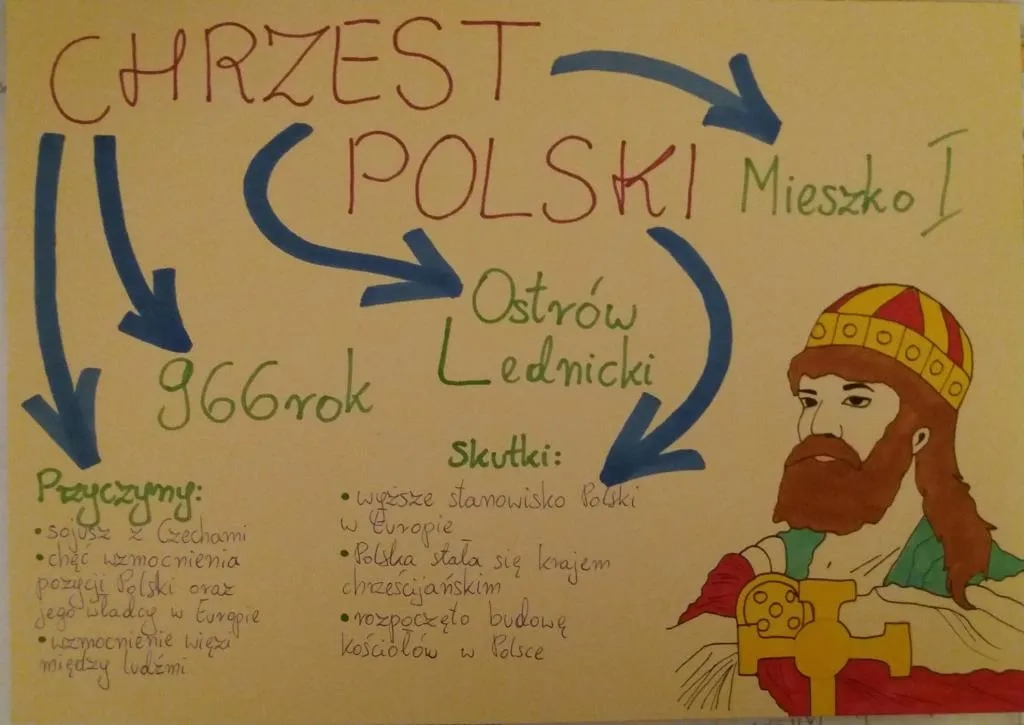 CHRZEST
POLSKI
Mieszko I
Ostrów
Lednicki
966 rok
Przyczyny:
• sojusz z Czechami
• chęć wzmocnienia
pozycji Polski oraz
jego władcy w Europie
• wzmocnienie więzi
między ludźmi
Skutki:
• wyższe stanowisko Polski
w Europie
• Polska stała się krajem
chrześcijańskim
• rozpoczęto budowę
kościołów w Polsce